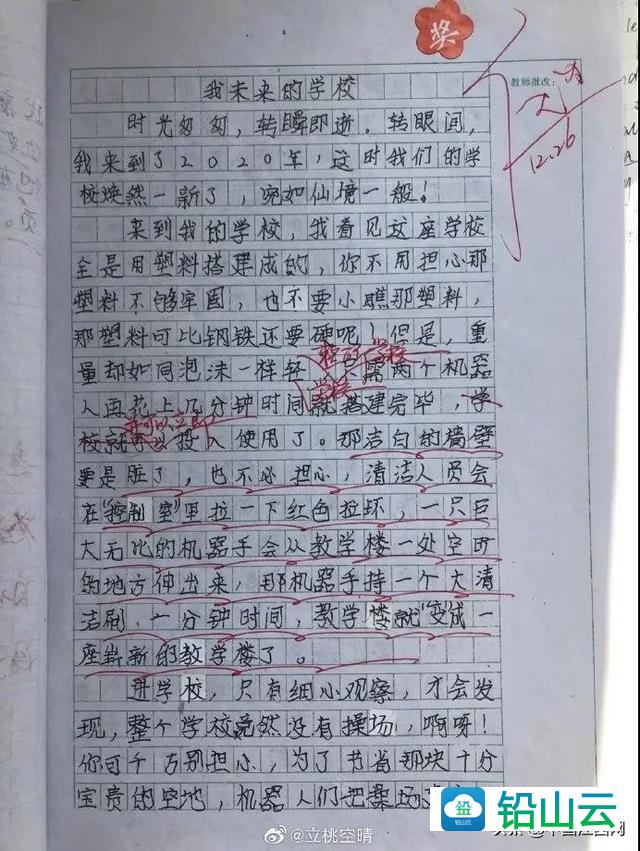 奖
教师批改:
12.26
我未来的学校
时光匆匆，转瞬即逝。转眼间，
我来到了2020年，这时我们的学
校焕然一新了，宛如仙境一般！
来到我的学校，我看见这座学校
全是用塑料搭建成的，你不用担心那
塑料不够牢固，也不要小瞧那塑料，
那塑料可比钢铁还要硬呢！但是，重
量却如同泡沫一样轻 需两个机器
人再花上几分钟时间就搭建完毕，学
校就可以投入使用了。那洁白的墙壁
要是脏了，也不必担心，清洁人员会
在“控制室”里拉一下红色拉环，一只巨
大无比的机器手会从教学楼一处空旷
的地方伸出来，那机器手持一个大清
洁刷，一分钟时间，教学楼就“变”成一
座崭新的教学楼了。
进学校，只有细小观察，才会发
现，整个学校竟然没有操场，啊呀！
你可千万别担心，为了节省那块十分
宝贵的空地，机器人们把操场
铅山云
铅山云
@立桃空晴